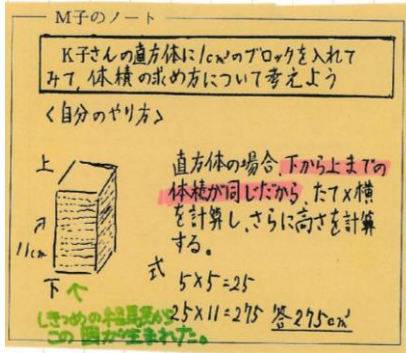 M子のノート
K子さんの直方体に1cm³のブロックを入れて
みて、体積の求め方について考えよう
<自分のやり方>
上
11cm
下
直方体の場合、下から上までの
体積が同じだから、たて×横
を計算し、さらに高さを計算
する。
式
5×5=25
25×11=275 答275cm³
しきつめの
この図が生まれた。